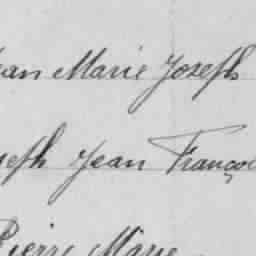 ean Marie Joseph
seph Jean Françoi
Pierre Marie